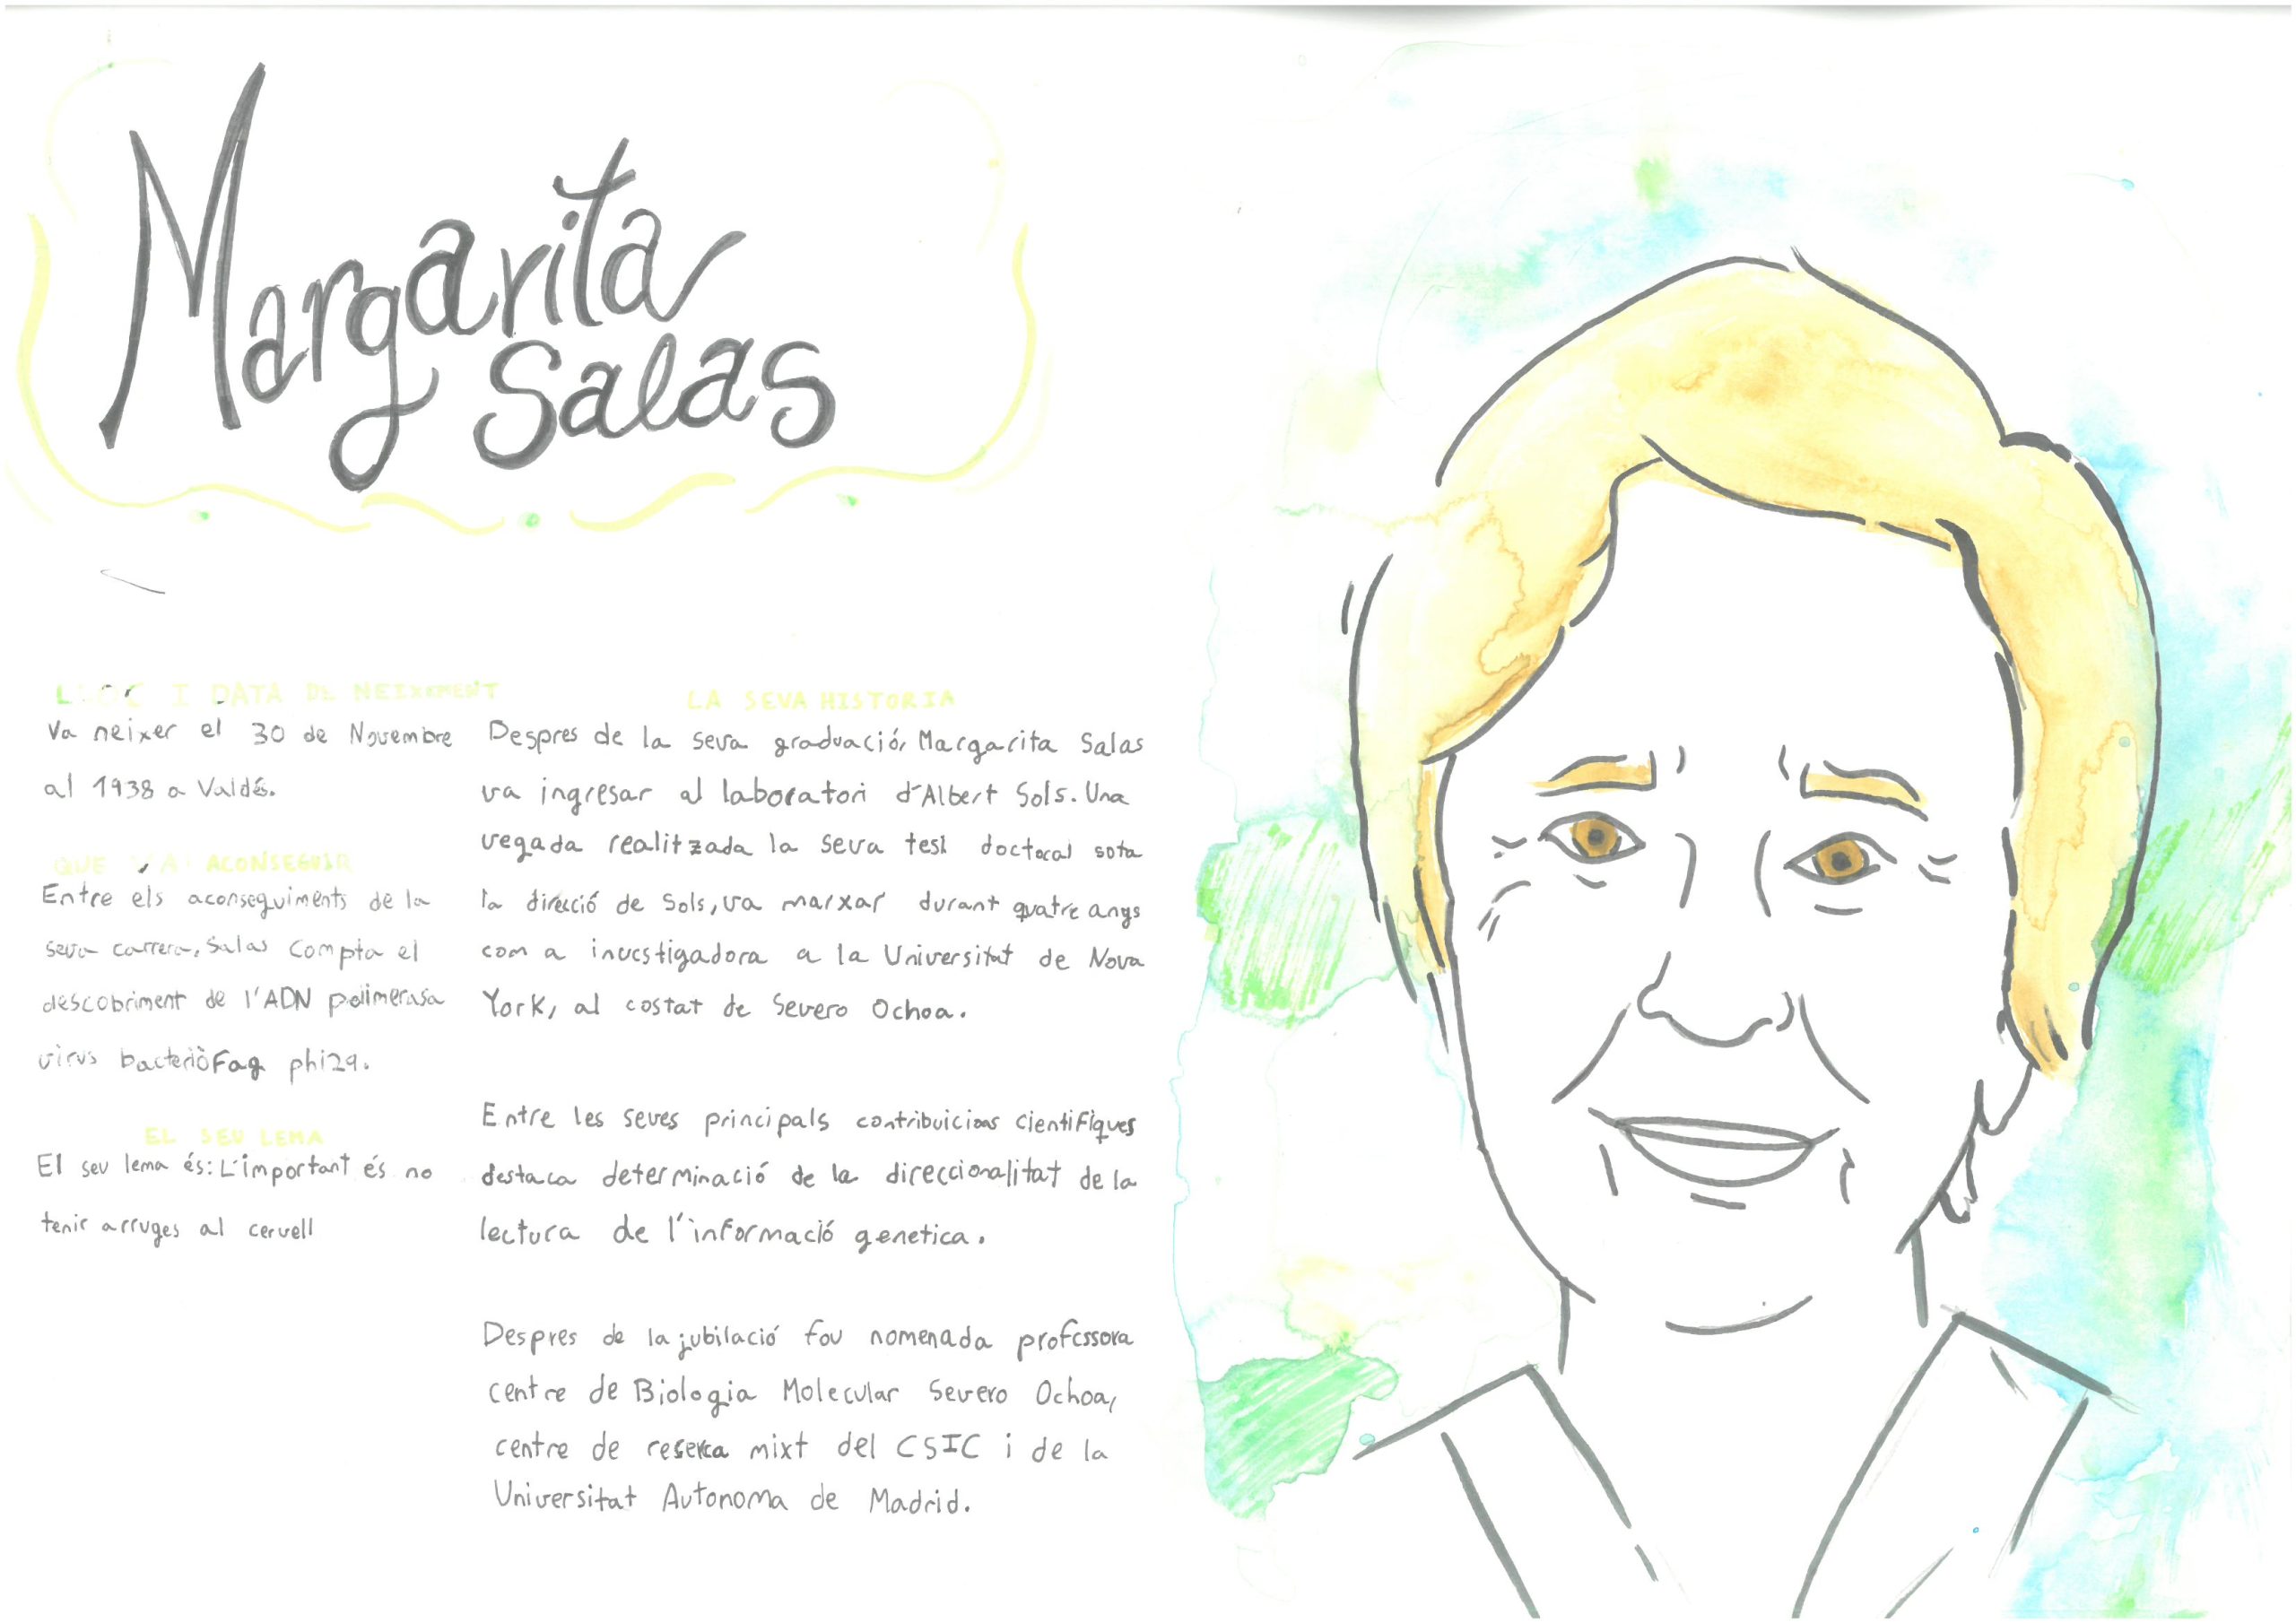 Margarita
Salas
LLOC I DATA DE NEIXEMENT
Va neixer el 30 de Novembre
al 1938 a Valdés.
QUE VA ACONSEGUIR
Entre els aconseguiments de la
seva carrera, Salas compta el
descobriment de l'ADN polimerasa
virus bacteriòfag phi29.
EL SEU LEMA
El seu lema és: L'important és no
tenir arruges al cervell
LA SEVA HISTORIA
Despres de la seva graduació, Margarita Salas
va ingresar al laboratori d'Albert Sols. Una
vegada realitzada la seva tesi doctoral sota
la direcció de Sols, va marxar durant quatre anys
com a investigadora a la Universitat de Nova
York, al costat de Severo Ochoa.
Entre les seves principals contribuicions cientifiques
destaca determinació de la direccionalitat de la
lectura de l'informació genetica.
Despres de la jubilació fou nomenada professora
centre de Biologia Molecular Severo Ochoa,
centre de reserca mixt del CSIC i de la
Universitat Autonoma de Madrid.